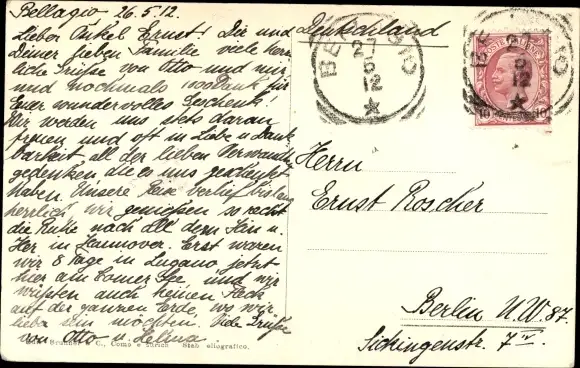 Bellagio 26.5.12.
Lieber Onkel Ernst! Dir und
Deiner lieben Familie viele herz-
liche Grüsse von Otto und mir
und nochmals 1000 Dank für
Euer wundervolles Geschenk!
Wir werden uns stets daran
freuen und oft in Liebe u. Dank-
barkeit all der lieben Verwandten
gedenken die es uns geschenkt
haben. Unsere Reise verlief bis lang
herrlich, wir genießen so recht
die Ruhe nach all dem Hin u.
Her in Hannover. Erst waren
wir 8 Tage in Lugano jetzt
hier am Comer See und wir
wüßten auch keinen Fleck
auf der ganzen Erde, wo wir
lieber sein möchten. Viele Grüße
von Otto u. Selma.
Brunner & C., Como e Zürich Stab. eliografico.
Deutschland
BELLAGIO
27
5
12
BELLAGIO
27
5
12
POSTE ITALIANE
10 10
Herrn
Ernst Roscher
Berlin N.W. 87.
Sickingenstr. 7 IV.